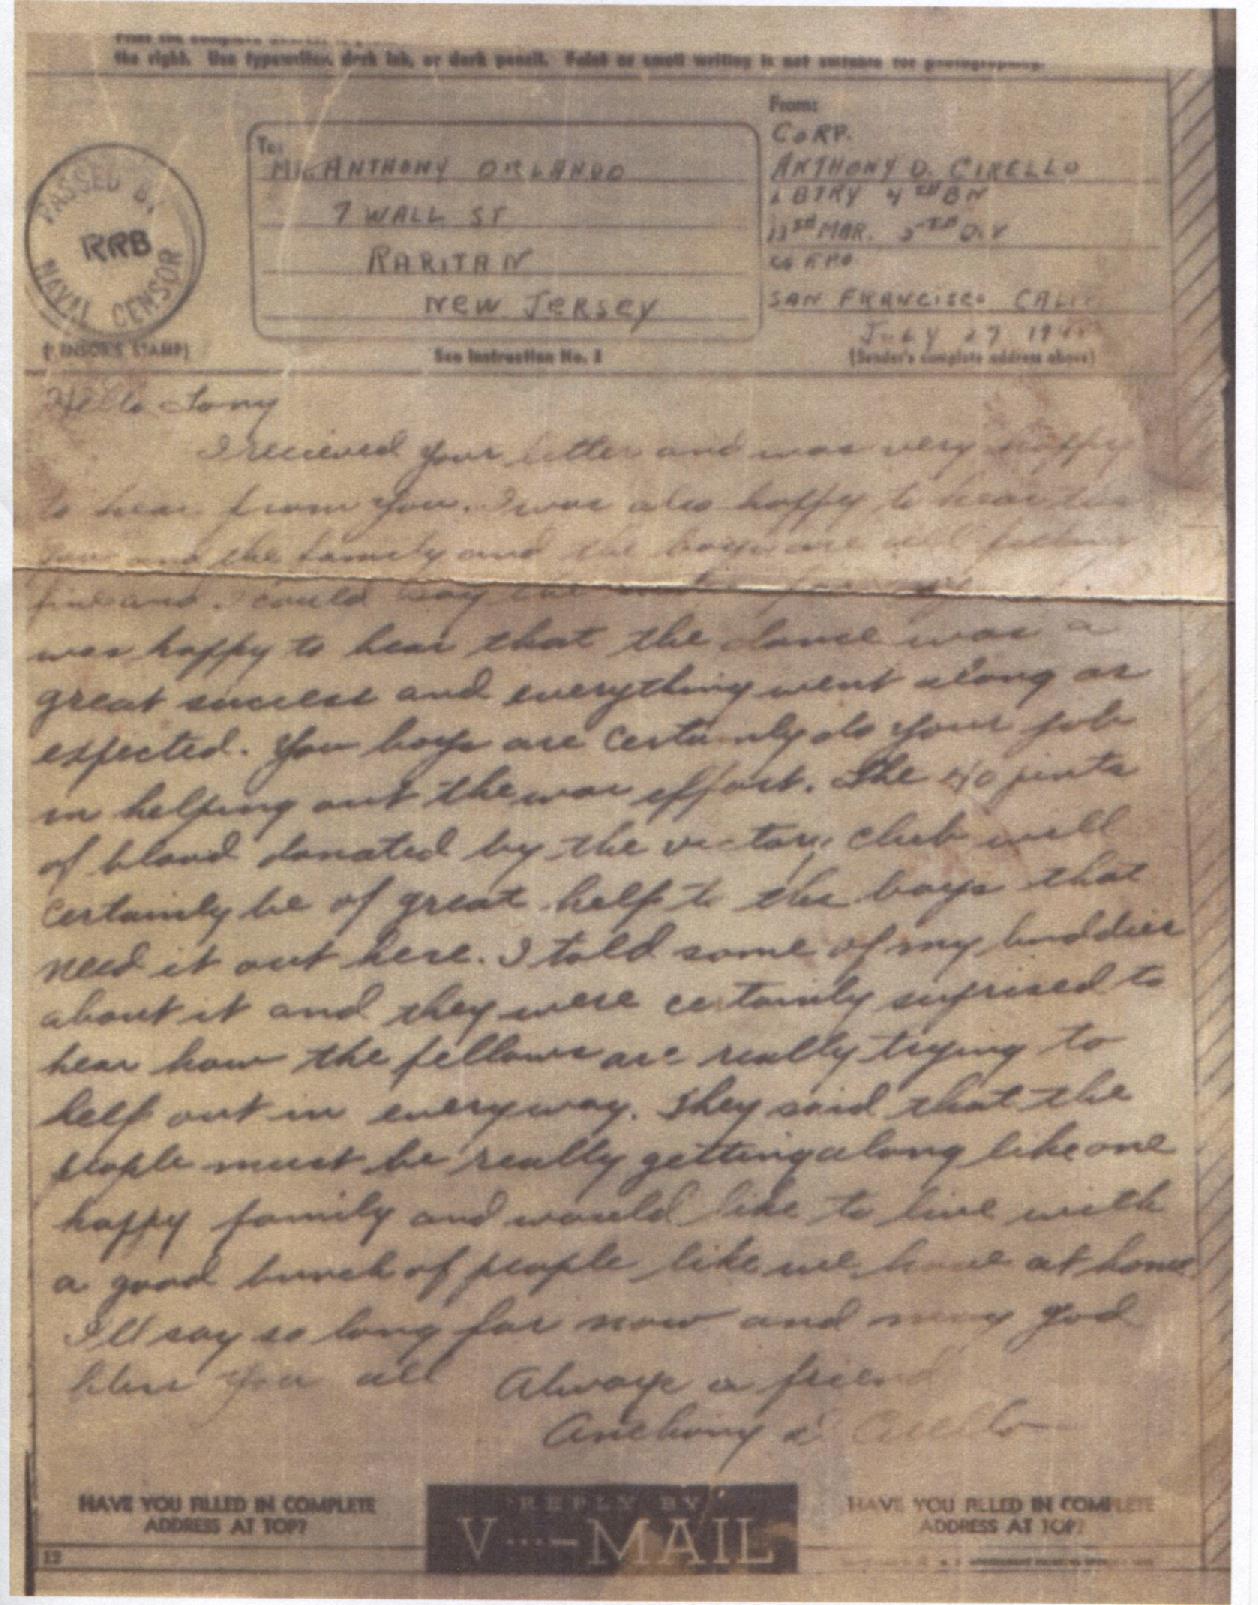 the right. Use typewriter, dark ink, or dark pencil. Faint or small writing is not suitable for photographing.
PASSED BY
RRB
NAVAL CENSOR
(CENSOR'S STAMP)
To:
Mr. ANTHONY ORLANDO
7 WALL ST
RARITAN
NEW JERSEY
See Instruction No. 1
From:
CORP.
ANTHONY D. CIRELLO
BTRY 4TH BN
MAR. DIV
FPO
SAN FRANCISCO CALIF
JULY 27
(Sender's complete address above)
Hello Tony
I recieved your letter and was very happy
to hear from you. I was also happy to hear
you and the family and the boys are all feeling
fine and I could say the
was happy to hear that the dance was a
great success and everything went along as
expected. You boys are certainly do your job
in helping out the war effort. The 40 pints
of blood donated by the victory club will
certainly be of great help to the boys that
need it out here. I told some of my buddies
about it and they were certainly suprised to
hear how the fellows are really trying to
help out in everyway. They said that the
people must be really getting along like one
happy family and would like to live with
a good bunch of people like we have at home
I'll say so long for now and may god
bless you all Always a friend
Anthony Cirello
HAVE YOU FILLED IN COMPLETE
ADDRESS AT TOP?
REPLY BY
V···—MAIL
HAVE YOU FILLED IN COMPLETE
ADDRESS AT TOP?